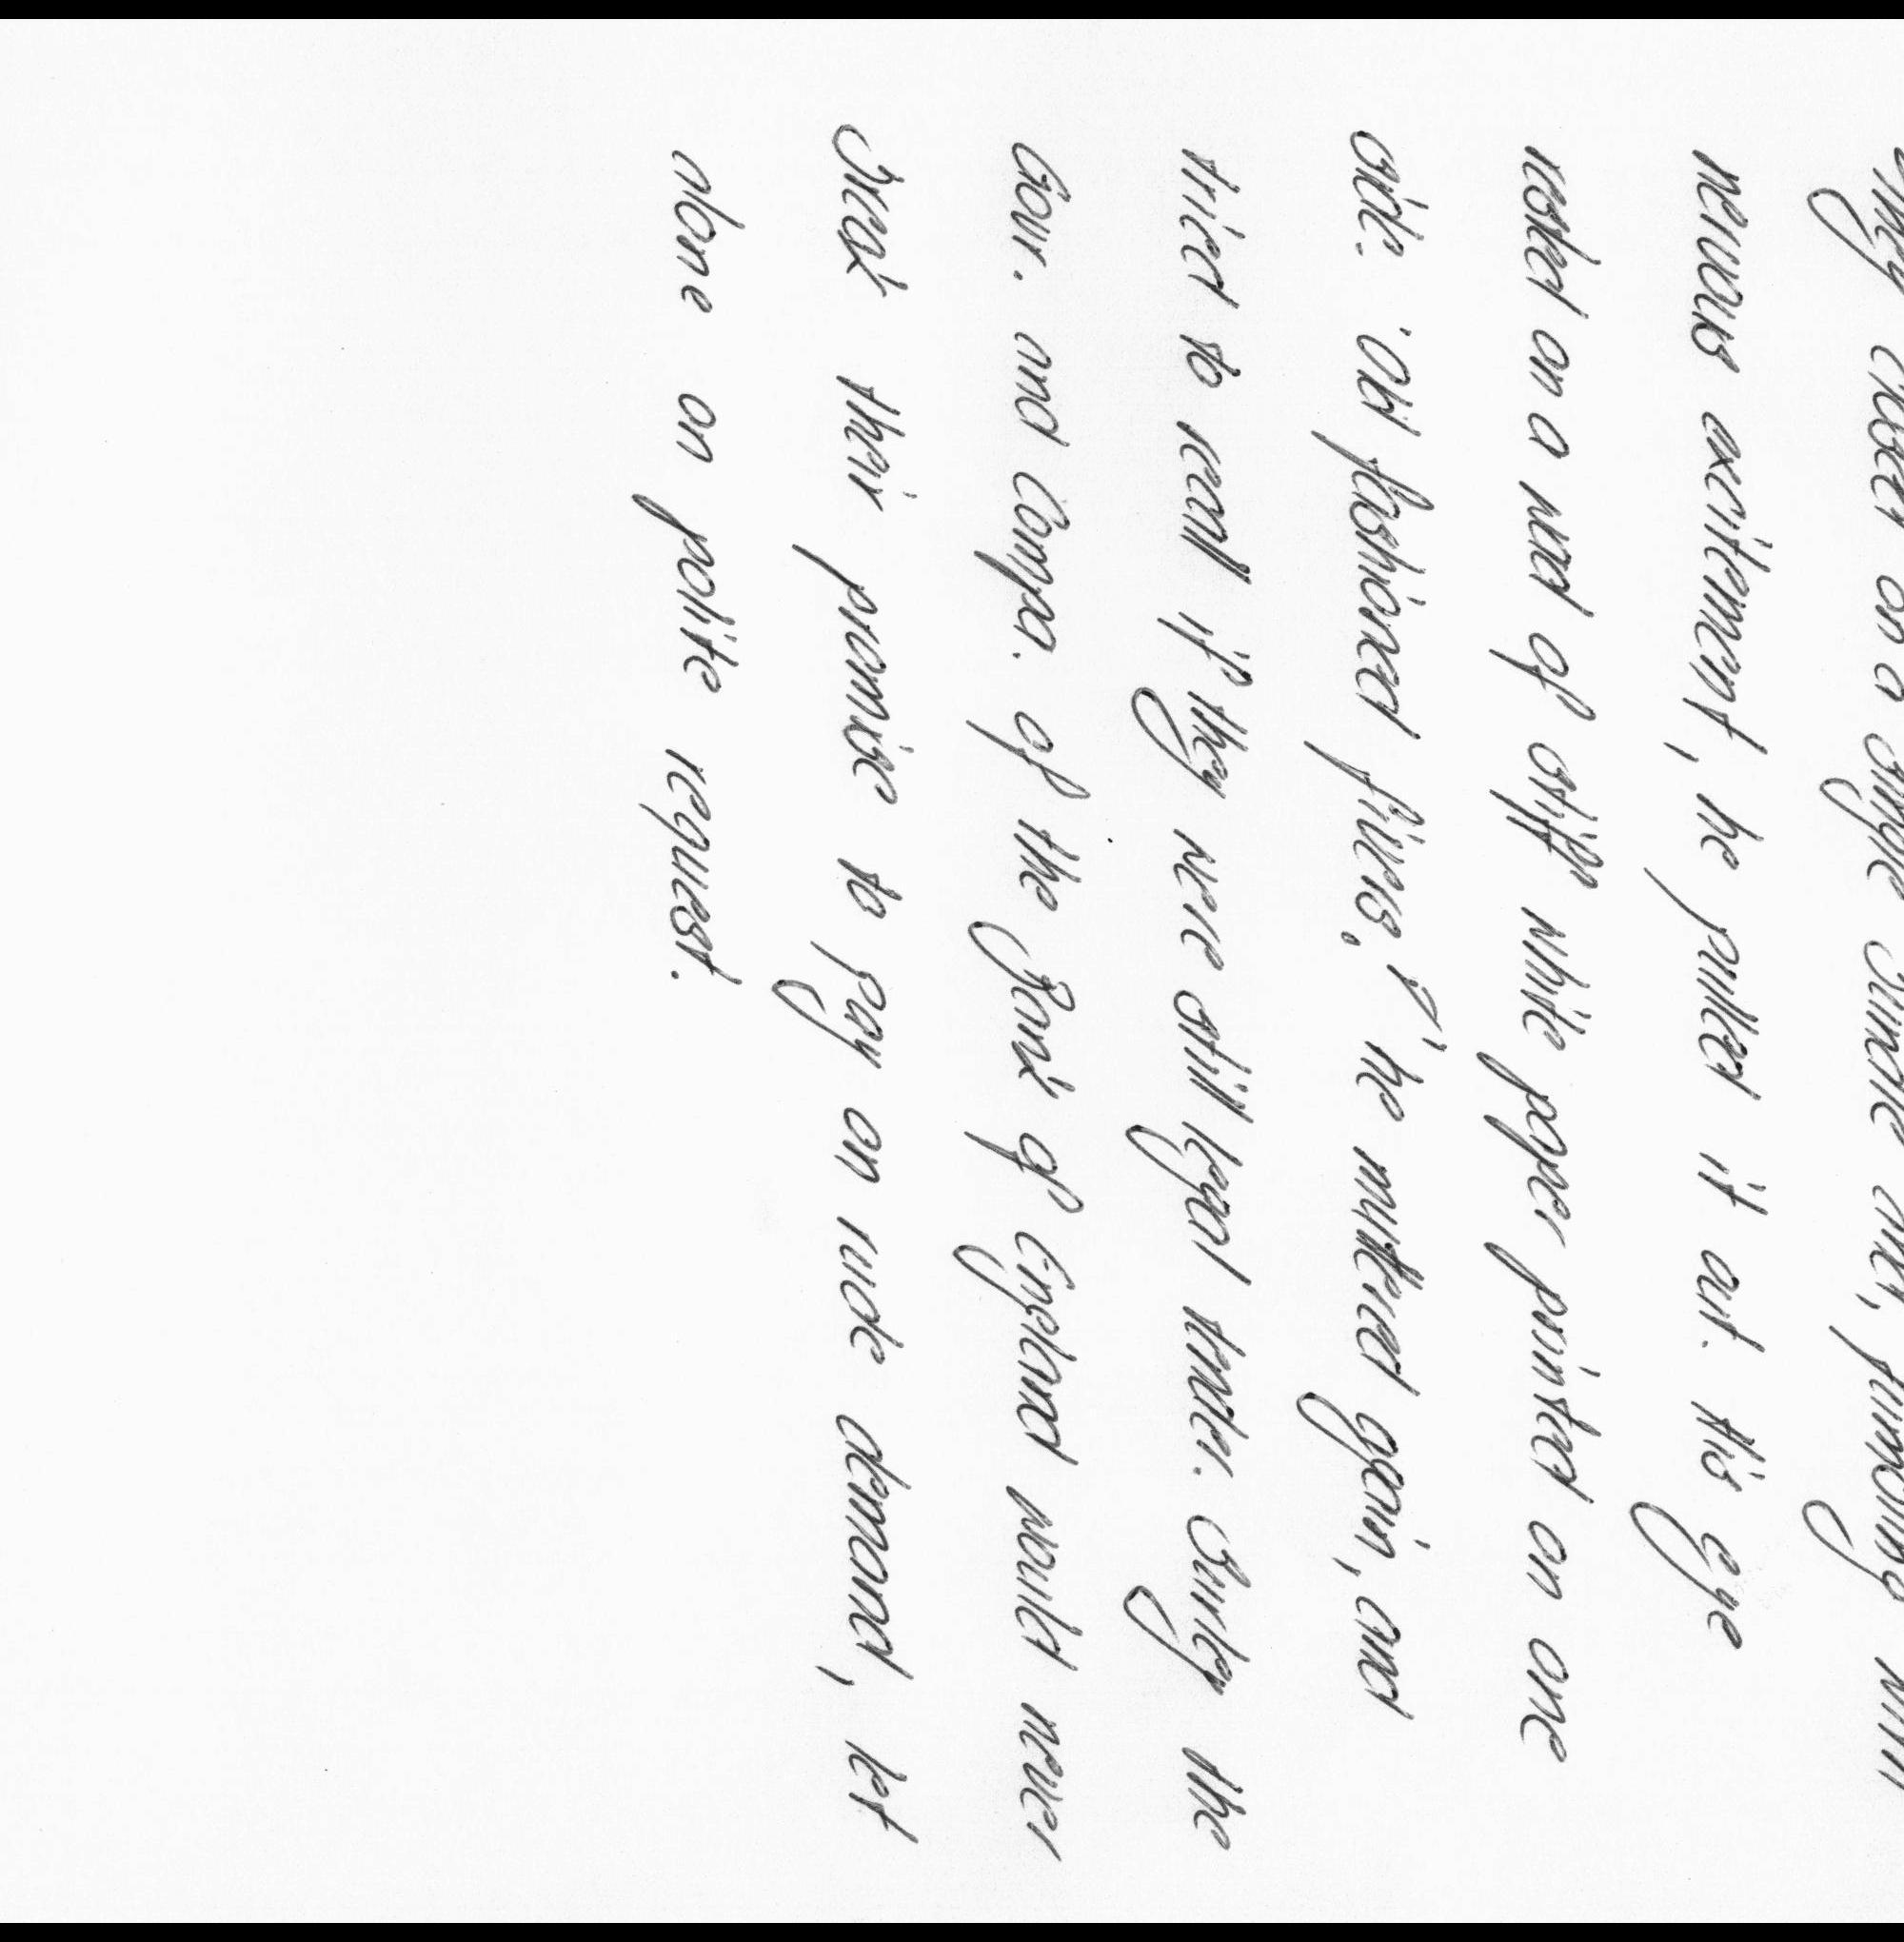 They closed on a single bundle and, fumbling with
nervous excitement, he pulled it out. His eye
rested on a wad of stiff white paper printed on one
side. 'Old fashioned fivers,' he muttered again, and
tried to recall if they were still legal tender. Surely the
Gov. and Compa. of the Bank of England would never
break their promise to pay on rude demand, let
alone on polite request.